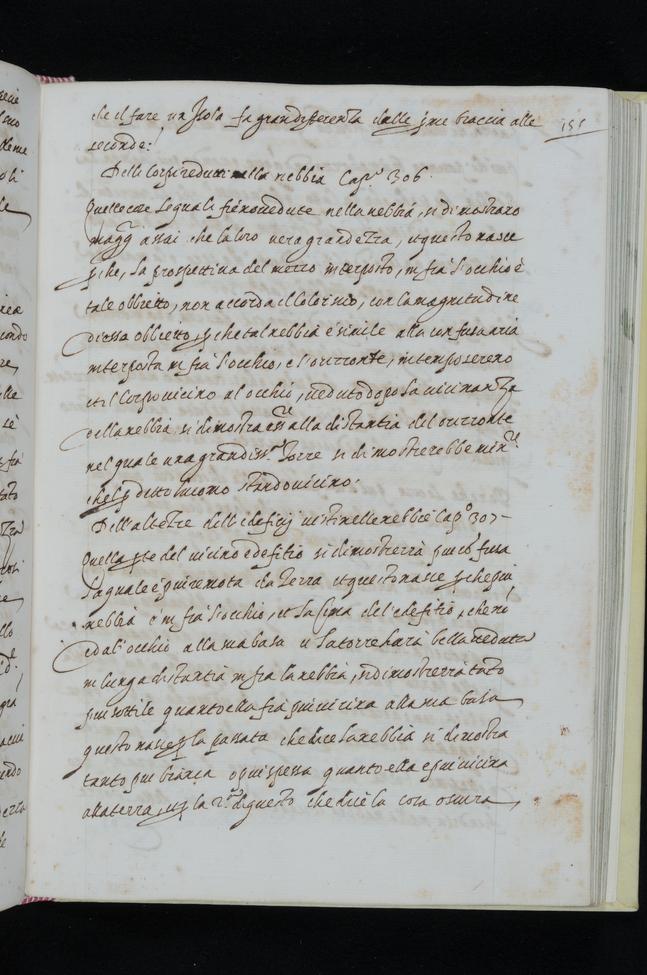 che il fare un Isola fa grandifferenza dalle pme braccia alle
155
seconde:
Delli Corpi reduti nella nebbia Cap.º 306.
Quelle cose le quali fieno vedute nella nebbia, si dimostrano
magg. assai che la loro vera grandezza, et questo nasce
pche, la prospettiva del mezzo interposto, infrà l'occhio è
tale obbietto, non accorda il Color suo, con la magnitudine
di essa obbietto, pche tal nebbia è simile alla confusa aria
interposta infrà l'occhio, e l'orizonte, in tempo sereno
et il Corpo vicino al occhio, veduto dopo la vicinanza
della nebbia si dimostra alla distantia del orizonte
nel quale una grandiss.ª Torre si dimostrerebbe min.re
che l p detto huomo stando vicino.
Dell'altezze dell'edefitij visti nelle nebbie Cap.º 307
Quella pte del vicino edefitio si dimosterrà piu cõfusa
la quale è piu remota da terra et questo nasce pche piu
nebbia è infrà l'occhio, et la Cima del'edefitio, che nõ
è dal'occhio alla sua basa et la torre
in lunga distantia infra la nebbia, si dimosterrà tãto
piu sottile quanto ella fia piu vicina alla sua basa
questo nasce p la passata che dice la nebbia si dimostra
tanto piu bianca o piu spessa quanto ella e piu vicina
alla terra, et p la 2.ª di questo che dice la cosa oscura